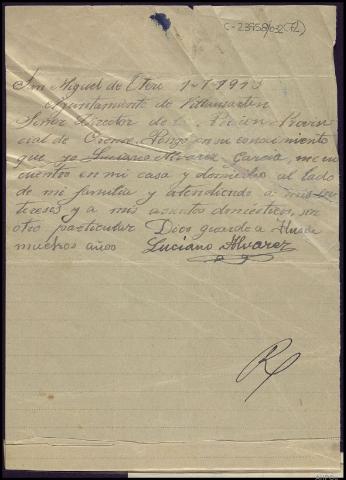 C-23958/032 (72)
San Miguel de Otero 1-1-1943
Ayuntamiento de Villamartin
Señor Director de la Prision Provin
cial de Orense. Pongo en su conocimiento
que yo Luciano Alvarez Garcia, me en
cuentro en mi casa y domicilio al lado
de mi familia y atendiendo a mis in
tereses y a mis asuntos domesticos, sin
otro particular Dios guarde a
muchos años Luciano Alvarez